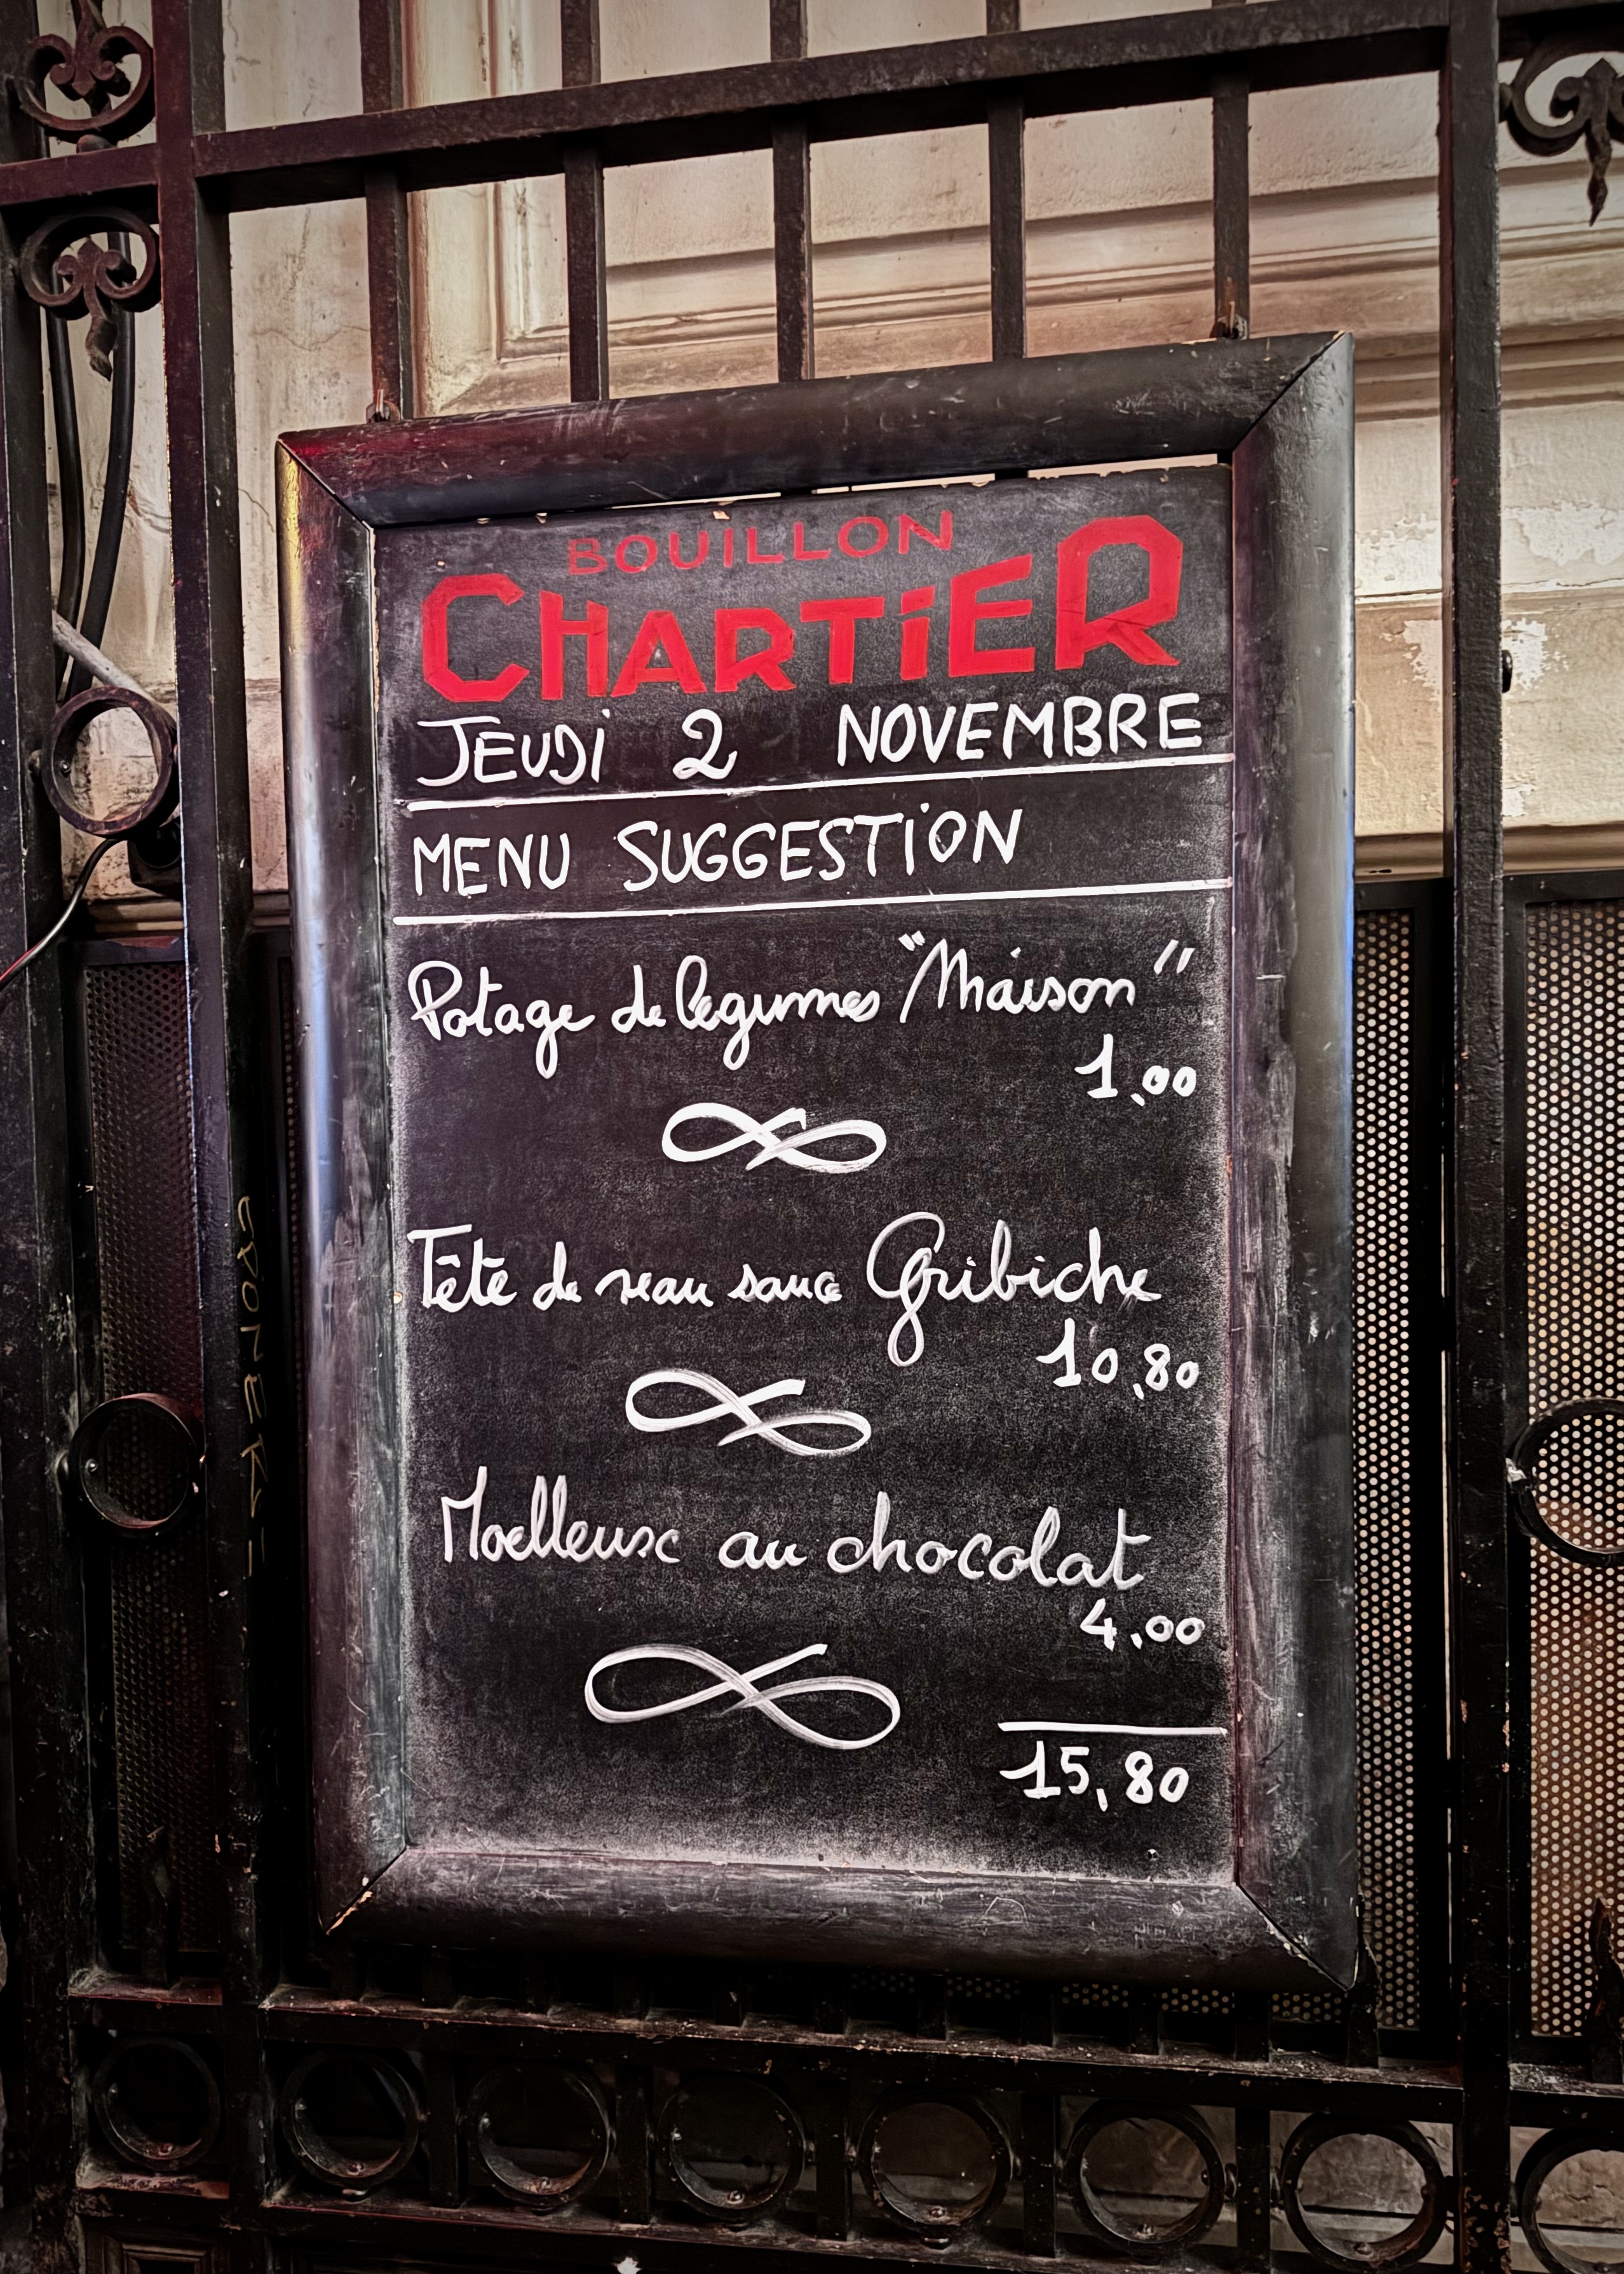 BOUILLON
CHARTiER
JEUDi 2 NOVEMBRE
MENU SUGGESTiON
Potage de legumes "Maison"
1,00
Tête de veau sauce Gribiche
10,80
Moelleuse au chocolat
4,00
15,80